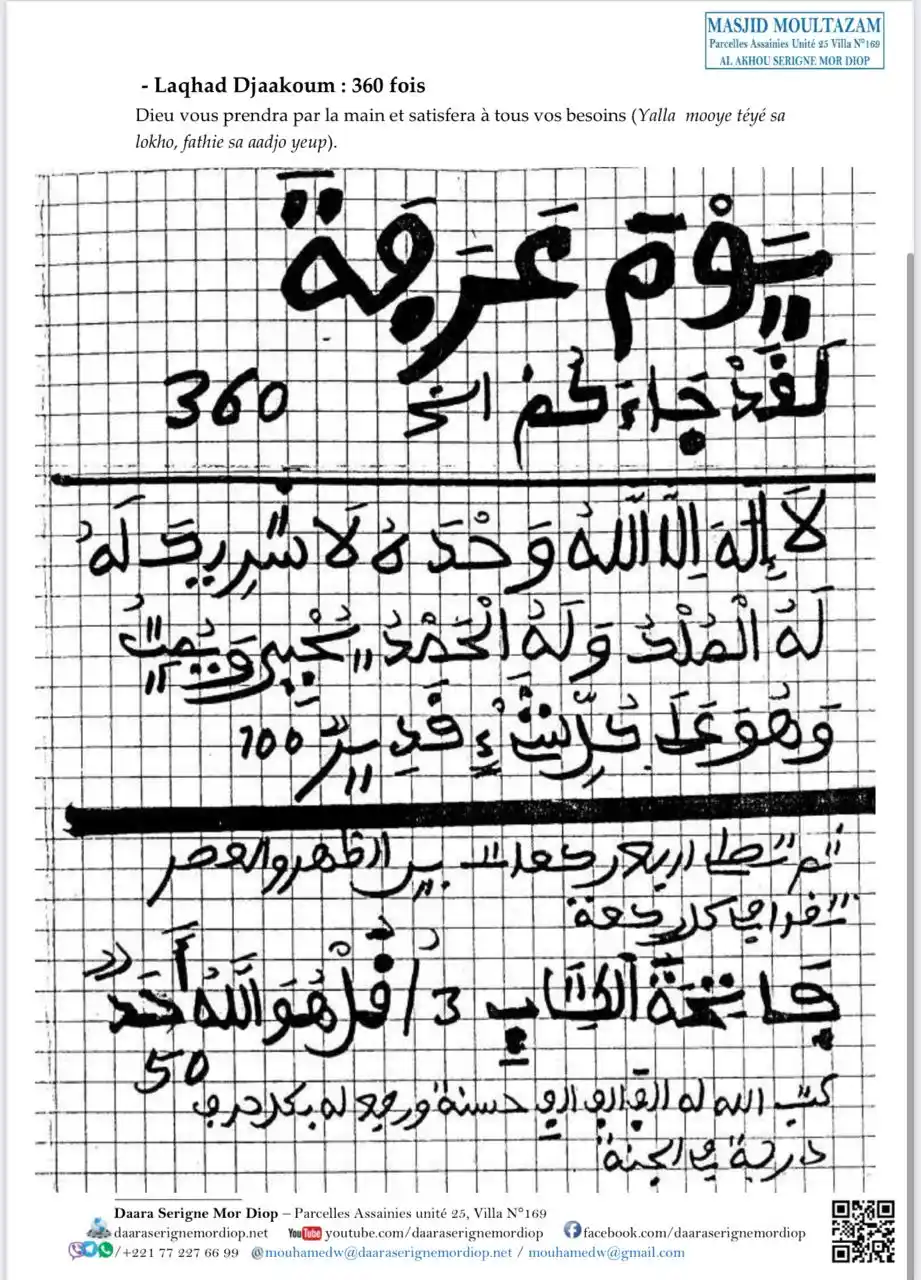 MASJID MOULTAZAM
Parcelles Assainies Unité 25 Villa N°169
AL AKHOU SERIGNE MOR DIOP
- Laqhad Djaakoum : 360 fois
Dieu vous prendra par la main et satisfera à tous vos besoins (Yalla mooye téyé sa
lokho, fathie sa aadjo yeup).
يَوْمَ عَرَفَةَ
لَقَدْ جَاءَكُمْ الخ 360
لَا إِلَهَ إِلَّا اللَّهُ وَحْدَهُ لَا شَرِيكَ لَهُ
لَهُ الْمُلْكُ وَلَهُ الْحَمْدُ يُحْيِي وَيُمِيتُ
وَهُوَ عَلَى كُلِّ شَيْءٍ قَدِيرٌ 100
ثم تصلي اربع ركعات بين الظهر والعصر
تقرا في كل ركعة
فَاتِحَةَ الْكِتَابِ 3 / قُلْ هُوَ اللَّهُ أَحَدٌ
50
كتب الله له الف الف حسنة ورفع له بكل حرف
درجة في الجنة
Daara Serigne Mor Diop – Parcelles Assainies unité 25, Villa N°169
daaraserignemordiop.net YouTube youtube.com/daaraserignemordiop facebook.com/daaraserignemordiop
/+221 77 227 66 99 @mouhamedw@daaraserignemordiop.net / mouhamedw@gmail.com